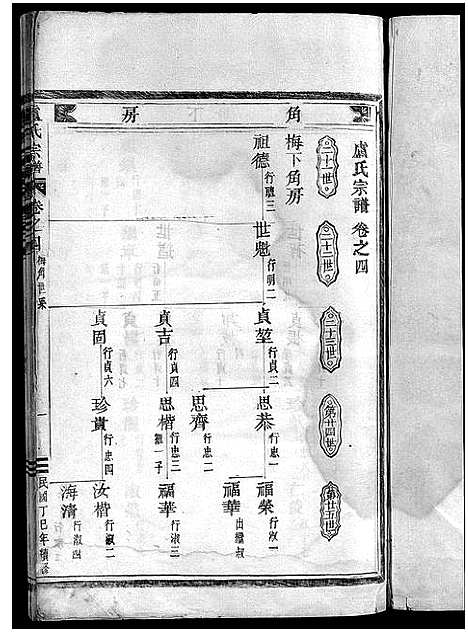 盧氏宗譜 卷之四
角 房
二十一世
二十二世
二十三世
第廿四世
第廿五世
梅下角房
祖德 行班三
世魁 行明二
貞堃 行貞二
思恭 行忠一
福榮 行淑一
福華 出繼淑
思齊 行忠二
貞吉 行貞四
思楷 行忠三 繼一子
福華 行淑三
貞固 行貞六
珍貴 行忠四
汝楷 行淑二
海清 行淑四
盧氏宗譜 卷之四 梅角世系 一 民國丁巳年續修